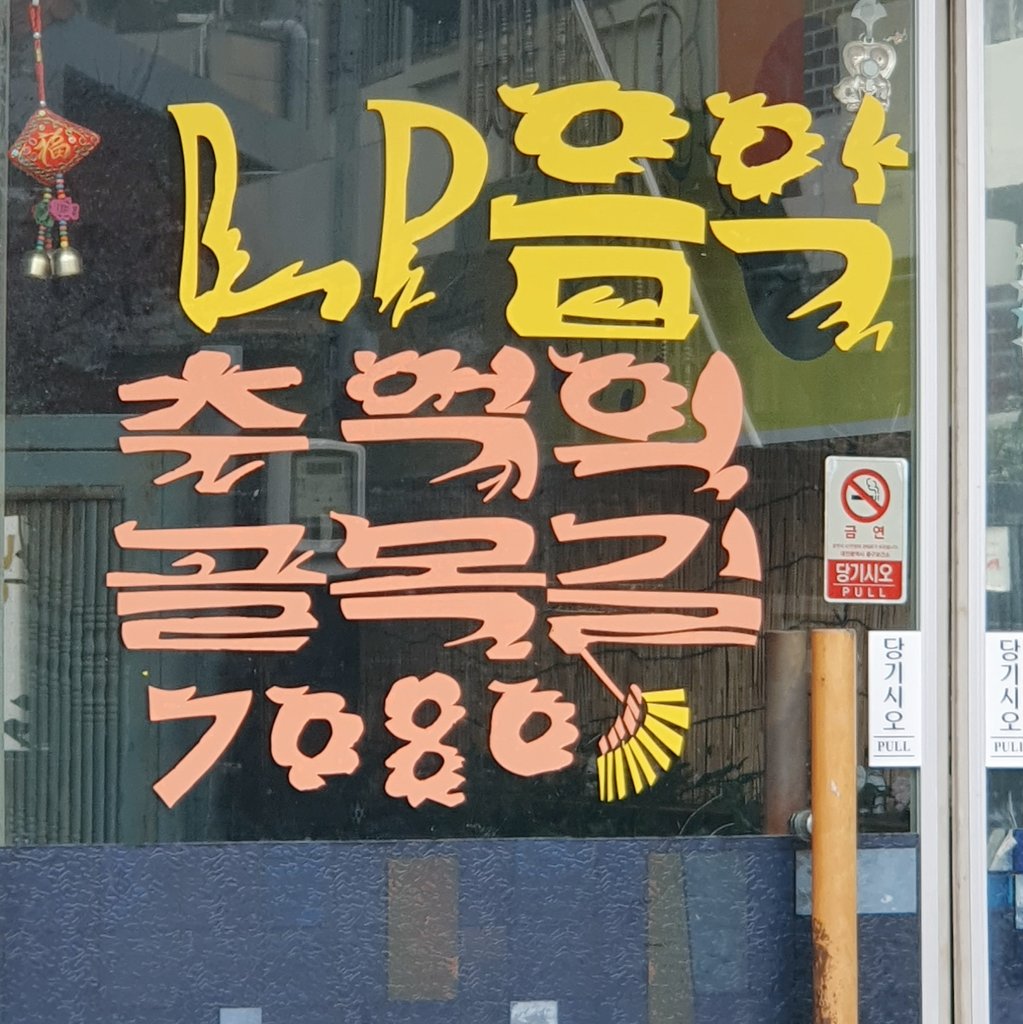 福
LP음악
추억의
골목길
7080
금 연
당기시오
PULL
당기시오
PULL
당기시오
PULL